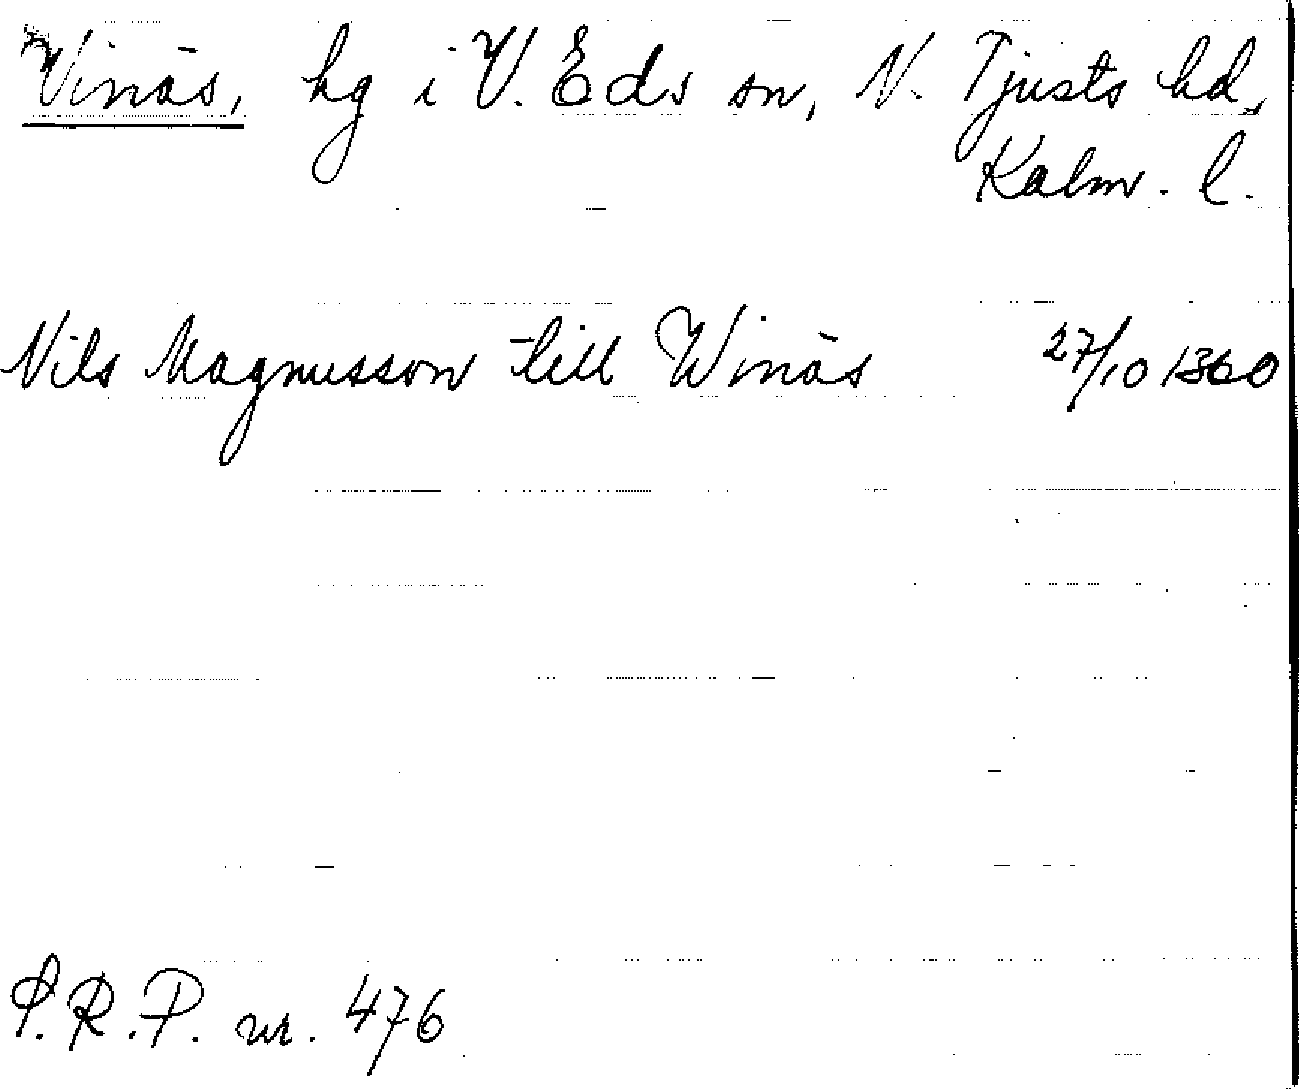 Vinäs, hg i V. Eds sn, N. Tjusts hd,
Kalm. l.
Nils Magnusson till Winäs 27/10 1360
S.R.P. nr. 476